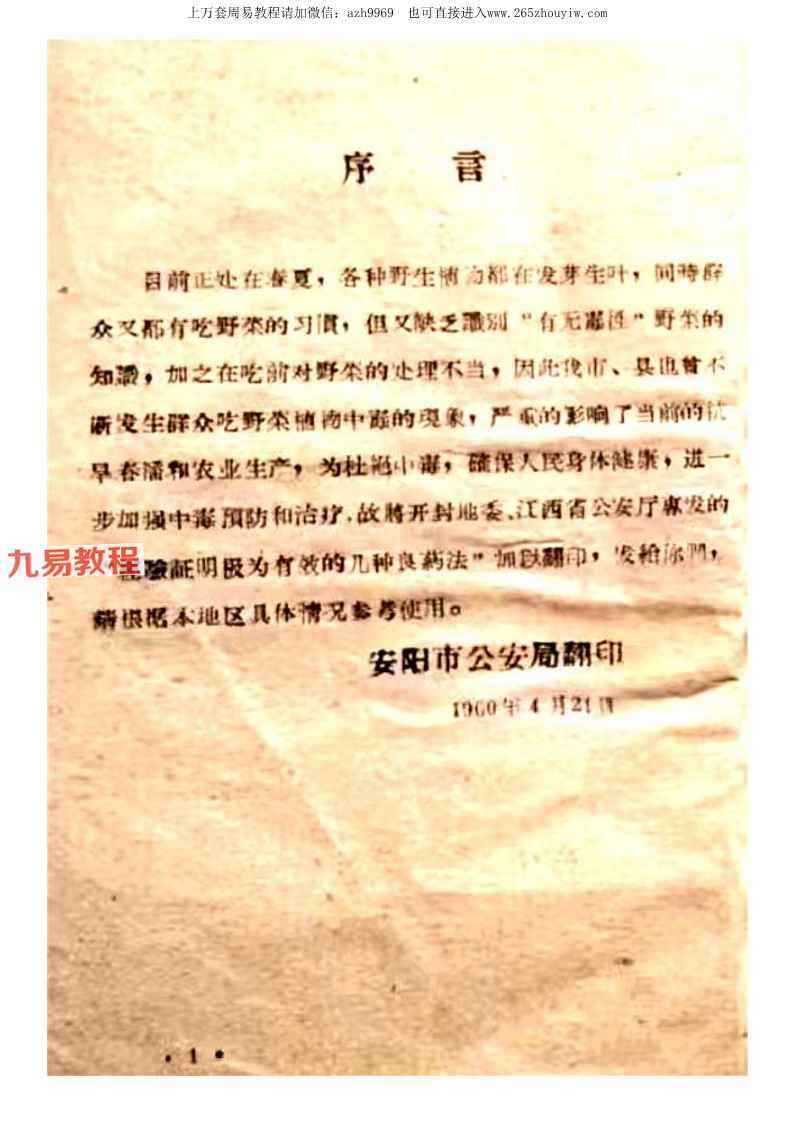 上万套周易教程请加微信：azh9969 也可直接进入www.265zhouyiw.com
序 言
目前正处在春夏，各种野生植物都在发芽生叶，同時群
众又都有吃野菜的习慣，但又缺乏識别“有无毒性”野菜的
知識，加之在吃前对野菜的处理不当，因此我市、县也曾不
断发生群众吃野菜植物中毒的現象，严重的影响了当前的抗
旱春播和农业生产，为杜絕中毒，確保人民身体健康，进一
步加强中毒預防和治疗，故將开封地委、江西省公安厅專发的
九易教程
驗証明极为有效的几种良葯法”加以翻印，发給你們，
請根据本地区具体情况参考使用。
安阳市公安局翻印
1960年4月21日
• 1 •